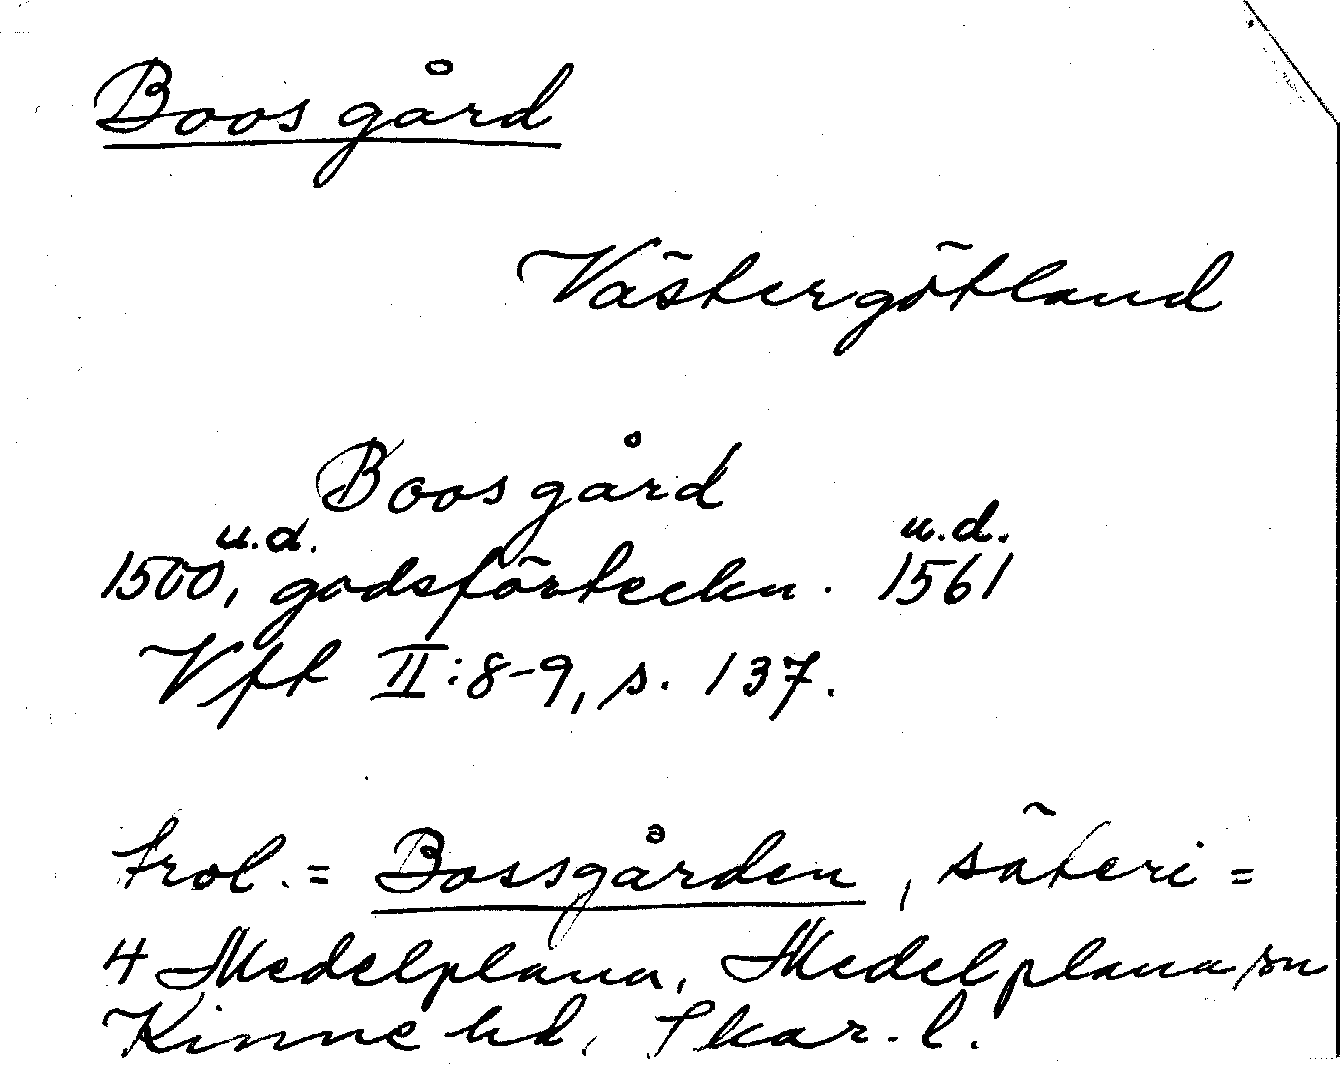 Boosgård
Västergötland
Boosgård
u.d. u.d.
1500, godsförteckn. 1561
Vft II:8-9, s. 137.
trol. = Bossgården, säteri =
4 Medelplana, Medelplana sn
Kinne hd, Skar. l.